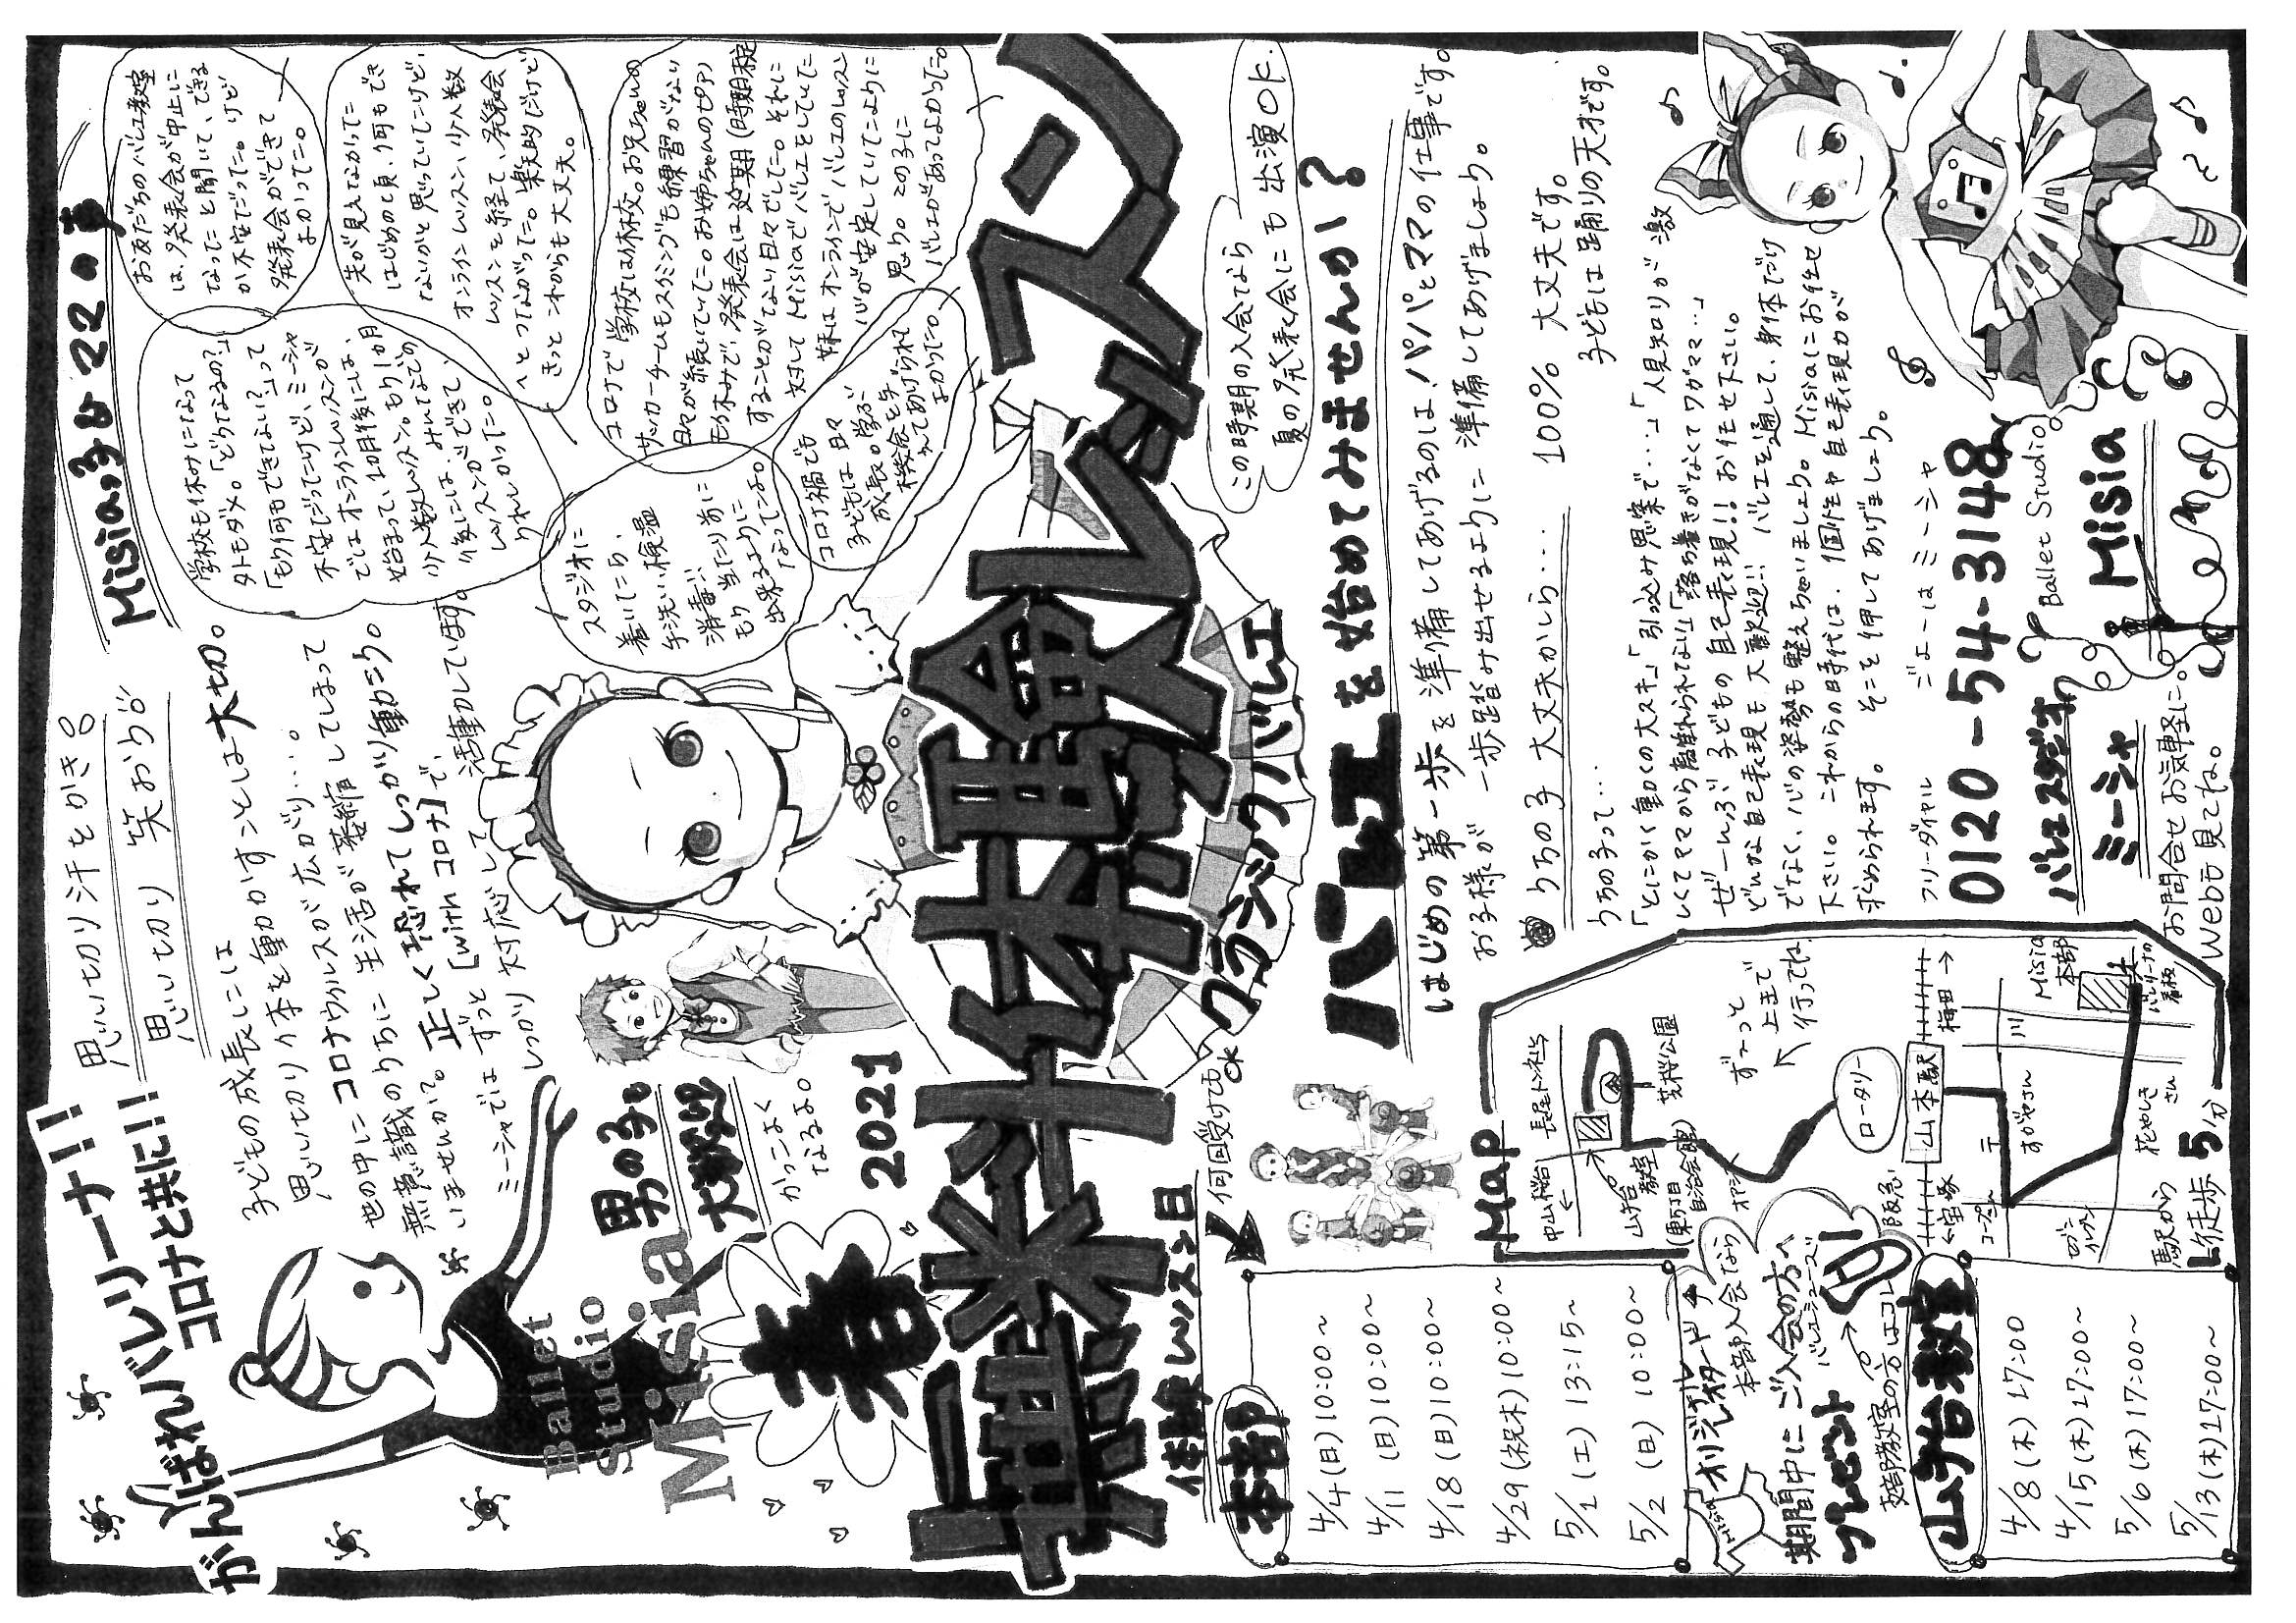 がんばれバレリーナ!!
コロナと共に!!
思い切り汗をかき
思い切り笑おう
子どもの成長には
思い切り体を動かすことは大切。
世の中にコロナウィルスが広がり…。
無意識のうちに生活が萎縮してしまって
いませんか?。正しく恐れてしっかり動こう。
ミーシャではずっと[withコロナ]で、
しっかり対応して活動しています。
Misiaっ子母22の声
お友だちのバレエ教室
は、発表会が中止に
なったと聞いて、できる
か不安だった。けど
発表会ができて
よかった。
先が見えなかった
はじめの頃、何もでき
ないかと思っていたけど、
オンラインレッスン、少人数
レッスンを経て、発表会
へとつながった。楽天的だけど
きっとこれからも大丈夫。
学校も休みになって
タトモダメ。「どうなるの?」
「もう何もできない?」って
不安だったけど、ミーシャ
ではオンラインレッスンが
始まって、1ヵ月後には、
少人数レッスン。もう1ヵ月
後には…みんなでの
レッスンができて、
うれしかった。
コロナで学校は休校。お兄ちゃんの
サッカーチームもスイミングも練習がない
日々が続いていた。お姉ちゃんのピアノ
もお休みで、発表会は延期(時期未定)
することがない日々でした。それに
対してMisiaでバレエをしていた
妹はオンラインでバレエのレッスン
心が安定していたように
思う。この子に
バレエがあってよかった。
スタジオに
着いたら、
手洗い、検温
消毒!!
もう当たり前に
出来るように
なってたよ。
コロナ禍でも
子どもは日々
成長。学ぶ
機会を与
えてあげられて
よかった。
Ballet
Studio
Misia
男の子も
大歓迎
かっこよく
なるよ。
2021
春
無料体験レッスン
クラシックバレエ
この時期の入会なら
夏の発表会にも出演OK.
バレエを始めてみませんか?
はじめの第一歩を準備してあげるのは、パパとママの仕事です。
お子様が一歩踏み出せるように準備してあげましょう。
うちの子大丈夫かしら… 100%大丈夫です。
子どもは踊りの天才です。
うちの子って…
「とにかく動くの大スキ」「引っ込み思案で…」「人見知りが激
しくてママから離れられない」「落ち着きがなくてワガママ…」
ぜーんぶ子どもの自己表現!!お任せ下さい。
どんな自己表現も大歓迎!!バレエを通して、身体だけ
でなく、心の姿勢も整えちゃいましょう。Misiaにお任せ
下さい。これからの時代は、個性や自己表現力が
求められます。そこを伸してあげましょう。
フリーダイヤル
ごよーはミーシャ
0120-54-3148
バレエスタジオ
ミーシャ
Ballet Studio
Misia
お問合せお気軽に。
Webも見てね。
体験レッスン日
何回受けても
OK
本部
4/4(日)10:00〜
4/11(日)10:00〜
4/18(日)10:00〜
4/29(祝木)10:00〜
5/1(土)13:15〜
5/2(日)10:00〜
オリジナルレオタード
本部入会なら
期間中にご入会の方へ
プレゼント
バレエシューズ
支部教室の方はコレ
山手台教室
4/8(木)17:00
4/15(木)17:00〜
5/6(木)17:00〜
5/13(木)17:00〜
Map
中山桜台
長尾トンネル
山手台
教室
(東5丁目
自治会館)
荒桜公園
オアシス
ずーっと
上まで
行ってね
ロータリー
阪急
山本駅
←宝塚
梅田→
コープさん
〒
すがやさん
川
セブン
イレブン
花やしき
さん
Misia
本部
バレリーナの
看板
駅から
徒歩5分